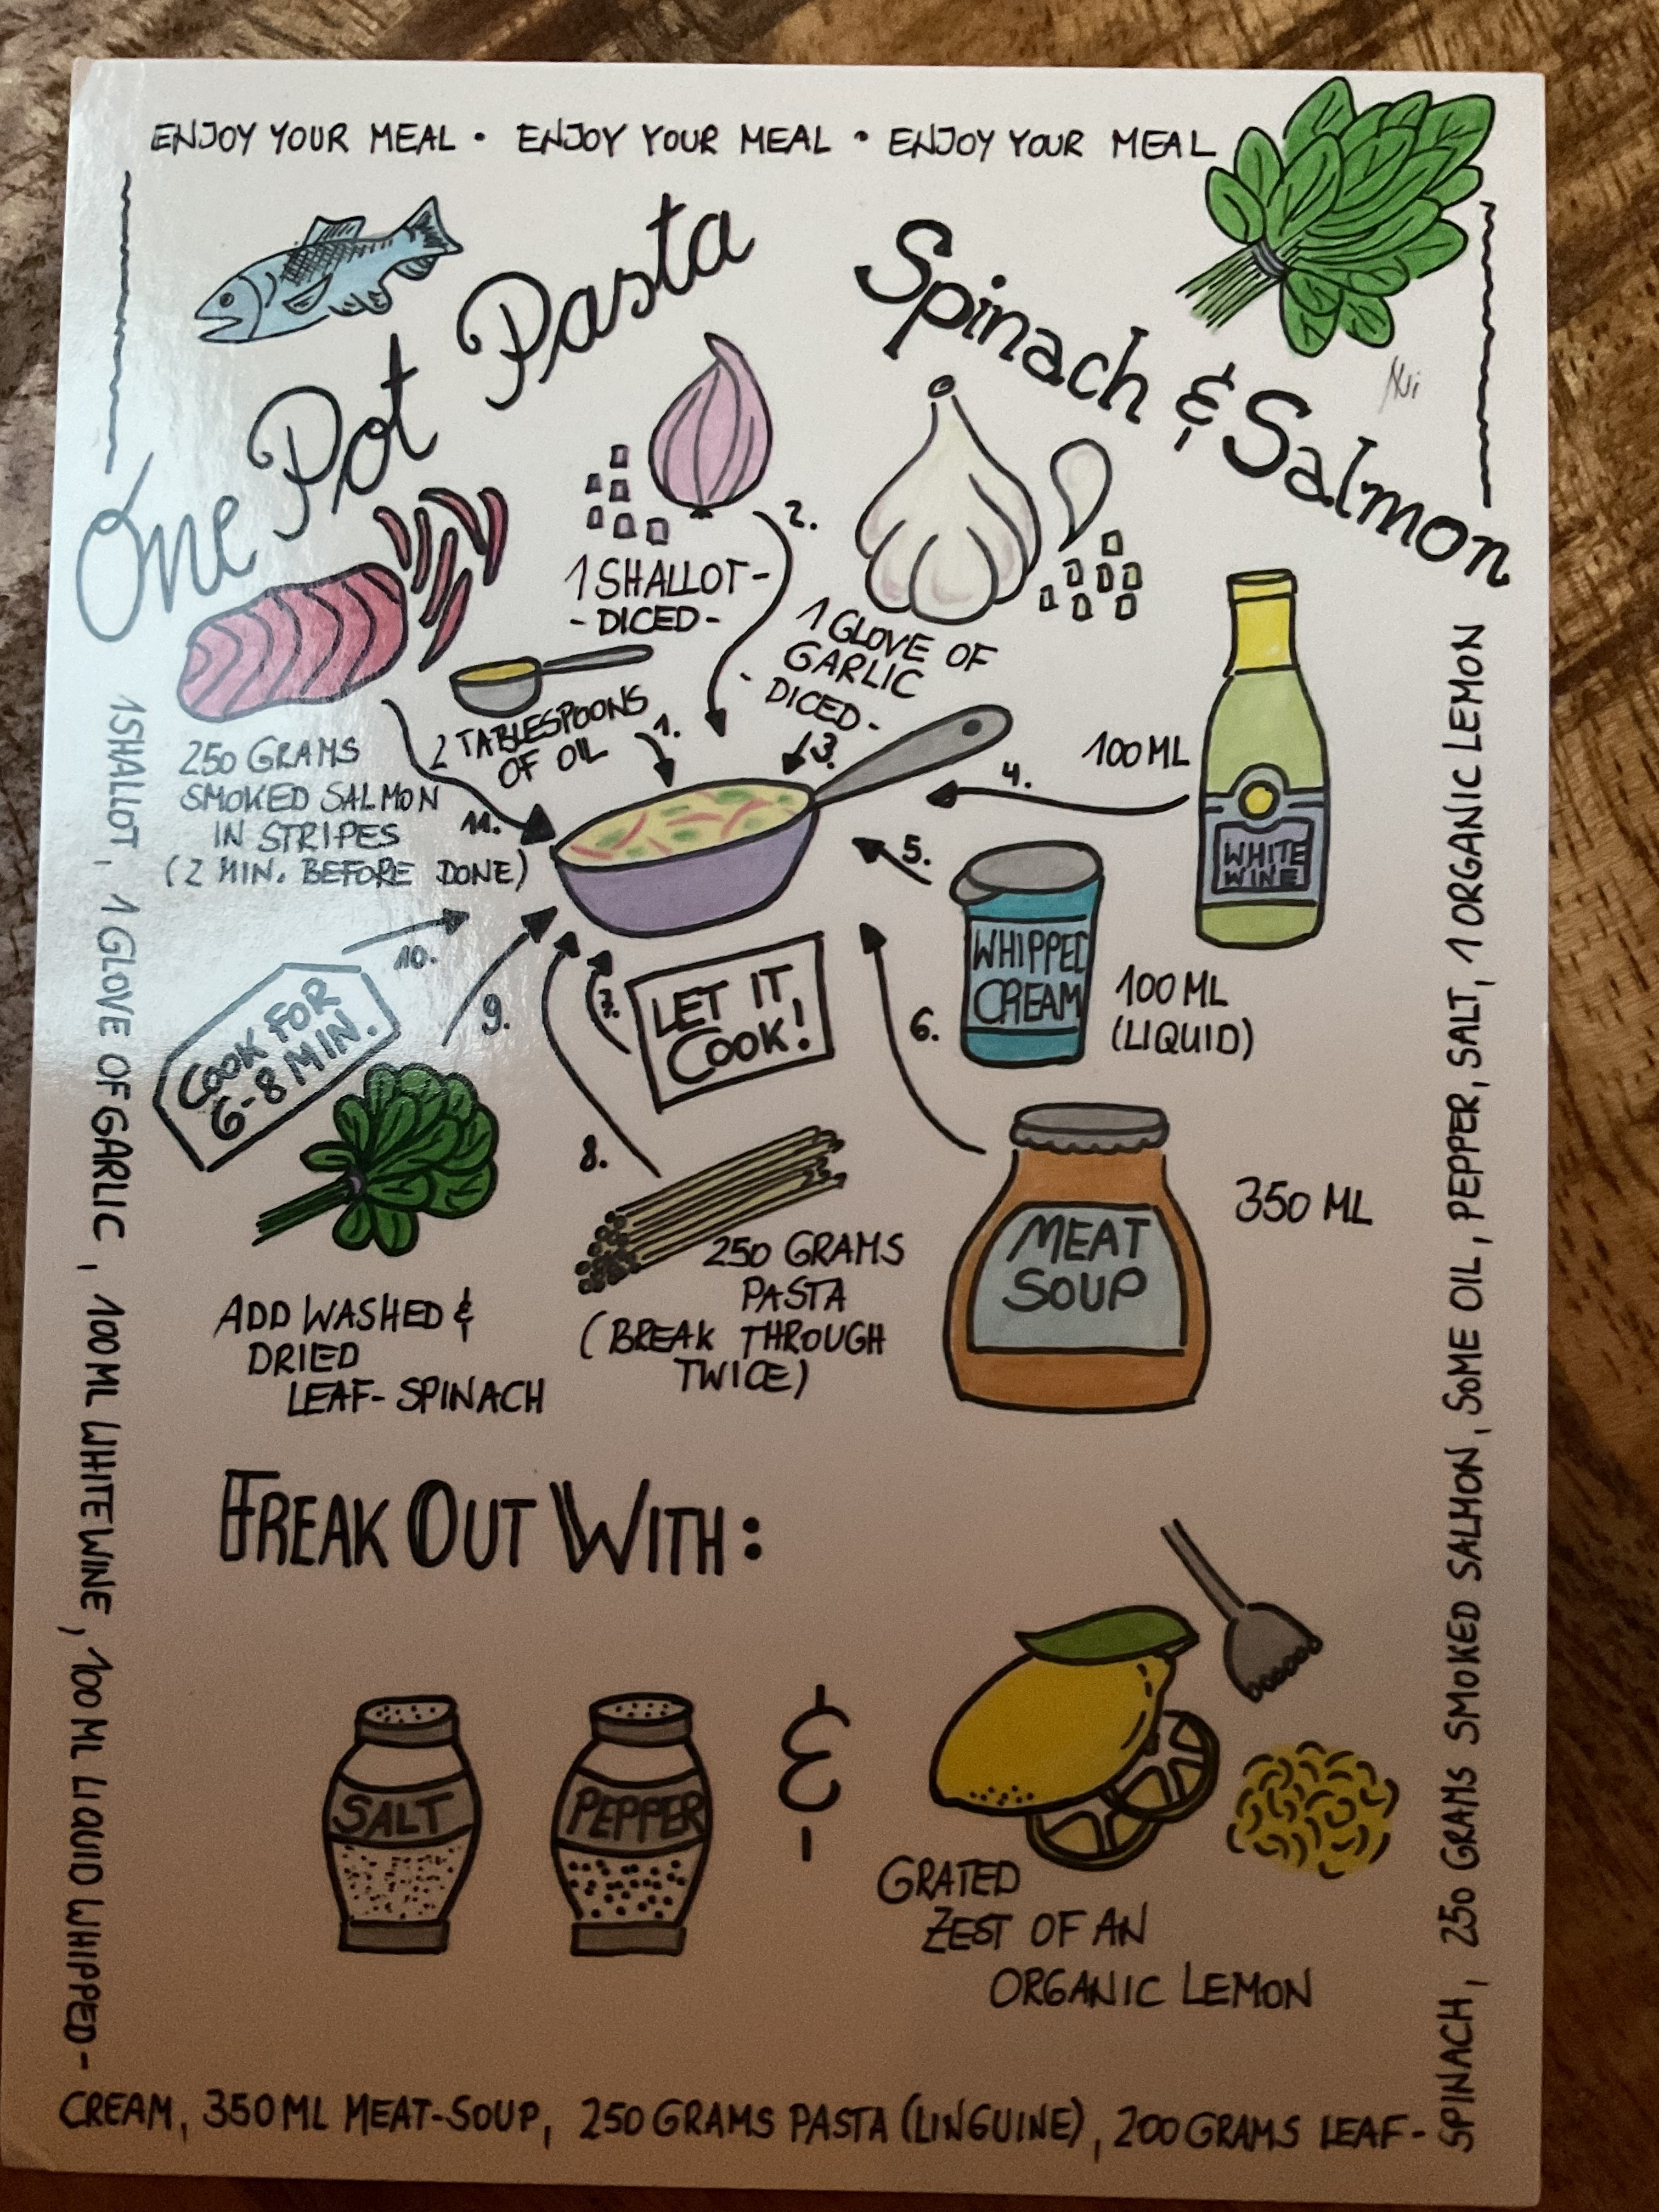 ENJOY YOUR MEAL • ENJOY YOUR MEAL • ENJOY YOUR MEAL
One Pot Pasta
Spinach & Salmon
1 SHALLOT-
- DICED -
2.
1 GLOVE OF
GARLIC
- DICED -
3.
2 TABLESPOONS
OF OIL
1.
100 ML
4.
WHITE
WINE
250 GRAMS
SMOKED SALMON
IN STRIPES
(2 MIN. BEFORE DONE)
11.
5.
WHIPPED
CREAM
100 ML
(LIQUID)
10.
COOK FOR
6-8 MIN.
9.
7.
LET IT
COOK!
6.
8.
MEAT
SOUP
350 ML
250 GRAMS
PASTA
(BREAK THROUGH
TWICE)
ADD WASHED &
DRIED
LEAF-SPINACH
FREAK OUT WITH:
SALT
PEPPER
&
GRATED
ZEST OF AN
ORGANIC LEMON
1 SHALLOT, 1 GLOVE OF GARLIC, 100 ML WHITE WINE, 100 ML LIQUID WHIPPED-
CREAM, 350 ML MEAT-SOUP, 250 GRAMS PASTA (LINGUINE), 200 GRAMS LEAF-
SPINACH, 250 GRAMS SMOKED SALMON, SOME OIL, PEPPER, SALT, 1 ORGANIC LEMON